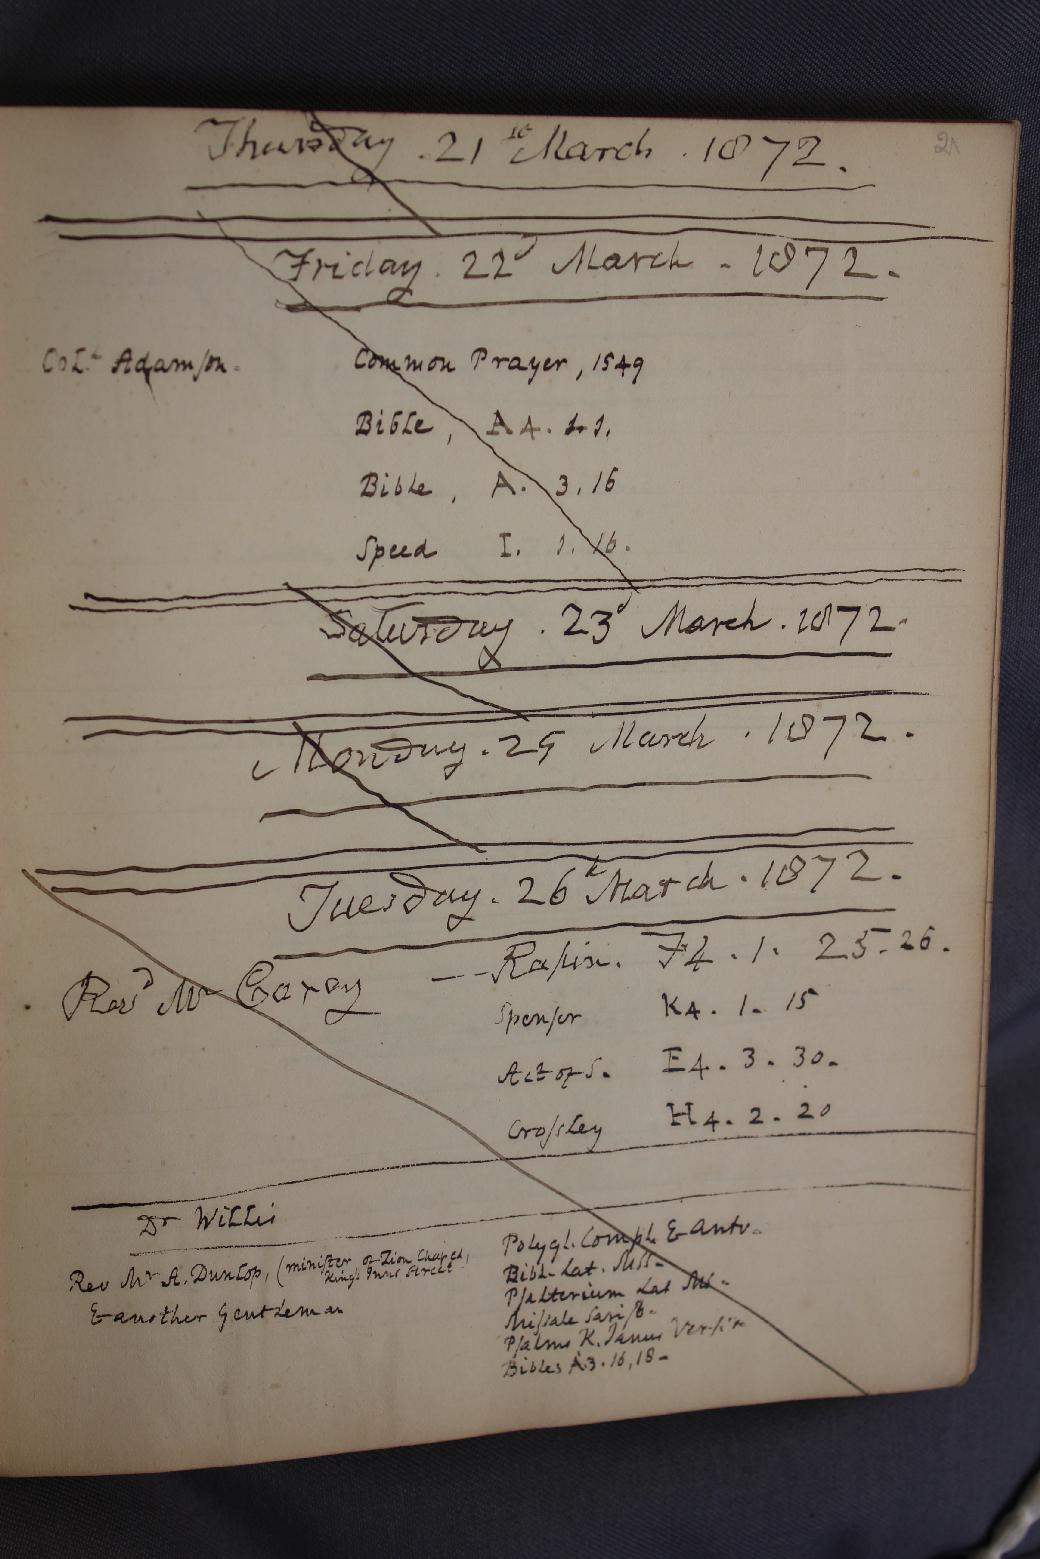 21
Thursday . 21st March . 1872.
Friday . 22d March . 1872.
Col.l Adamson. Common Prayer, 1549
Bible, A4.
Bible, A. 3. 16
Speed I. 1. 16.
Saturday . 23d March . 1872.
Monday . 25 March . 1872.
Tuesday . 26th March . 1872.
Revd Mr Carey — Rapin. F4. 1. 25. 26.
Spenser K4. 1. 15
Act of S. E4. 3. 30.
Crossley H4. 2. 20
Dr Willis
Rev Mr A. Dunlop, (minister of Zion Church,
King's Inns Street
& another Gentleman
Polygl. Compl. & Antv.
Bibl. Lat. MSS.
Psalterium Lat MS.
Missale
Psalms K. James Version
Bibles A3. 16, 18